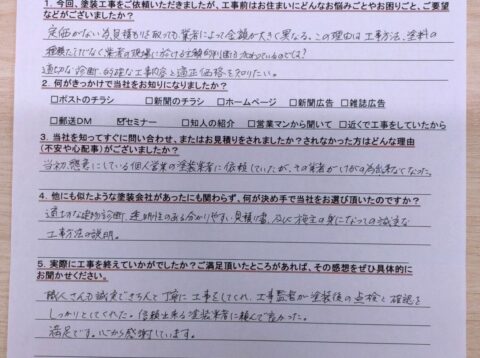 1. 今回、塗装工事をご依頼いただきましたが、工事前はお住まいにどんなお悩みごとやお困りごと、ご要望
などがございましたか？
定価がない為見積もりを取っても、業者によって金額が大きく異なる。この理由は工事方法、塗料の
種類だけでなく業者の現場に於ける
適切な診断、的確な工事内容と適正価格を知りたい。
2. 何がきっかけで当社をお知りになりましたか？
□ポストのチラシ □新聞のチラシ □ホームページ □新聞広告 □雑誌広告
□郵送DM ☑セミナー □知人の紹介 □営業マンから聞いて □近くで工事をしていたから
3. 当社を知ってすぐに問い合わせ、またはお見積りをされましたか？されなかった方はどんな理由
(不安や心配事)がございましたか？
当初、懇意にしている個人営業の塗装業者に依頼していたが、その業者がけがの為出来なくなった。
4. 他にも似たような塗装会社があったにも関わらず、何が決め手で当社をお選び頂いたのですか？
適切な建物診断、透明性のある分かりやすい見積り書、及び施主の身になっての誠実な
工事方法の説明。
5. 実際に工事を終えていかがでしたか？ご満足頂いたところがあれば、その感想をぜひ具体的に
お聞かせください。
職人さんも誠実できちんと丁寧に工事をしてくれ、工事監督が塗装後の点検と確認を
しっかりとしてくれた。信頼出来る塗装業者に頼んで良かった。
満足です。心から感謝しています。